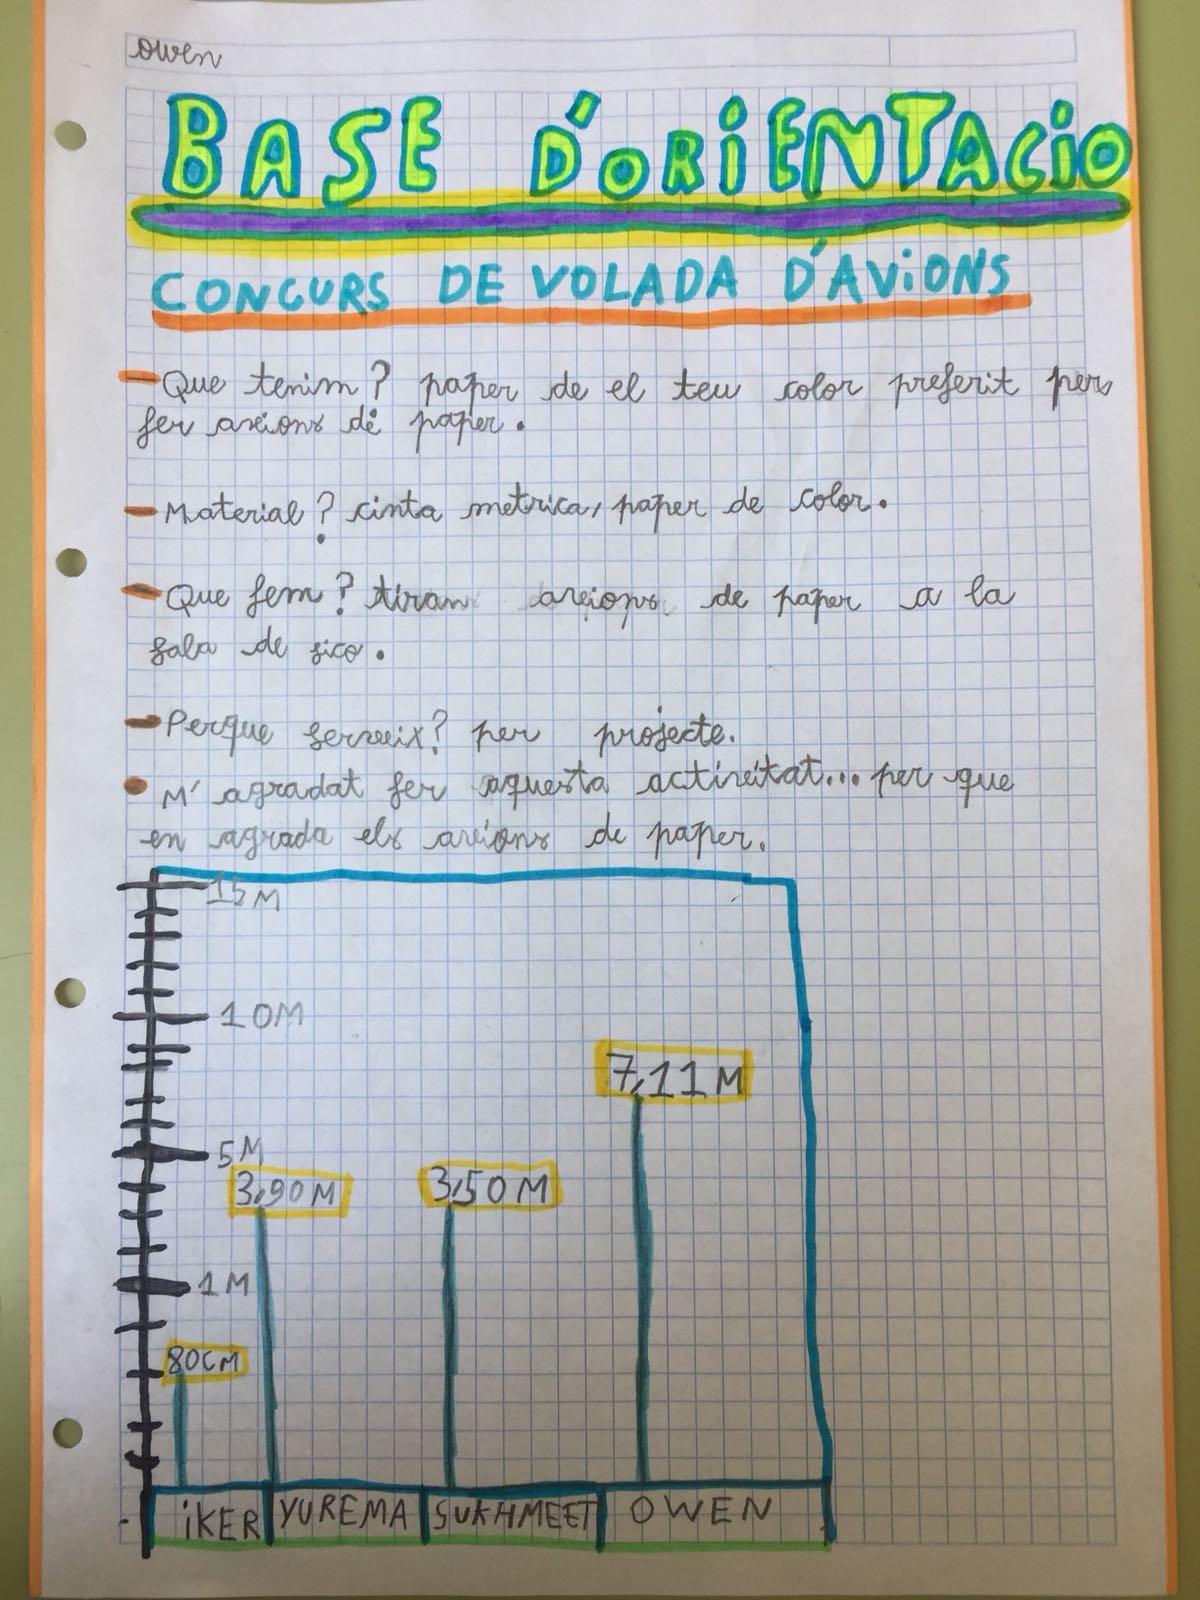 owen
BASE D'ORIENTACIO
CONCURS DE VOLADA D'AVIONS
-Que tenim? paper de el teu color preferit per
fer avions de paper.
-Material? cinta metrica, paper de color.
-Que fem? tiran avions de paper a la
sala de sico.
-Perque serveix? per projecte.
• M' agradat fer aquesta activitat... per que
en agrada els avions de paper.
15M
10M
7,11M
5M
3,90M 3,50M
1M
80CM
iKER YUREMA SUKHMEET OWEN